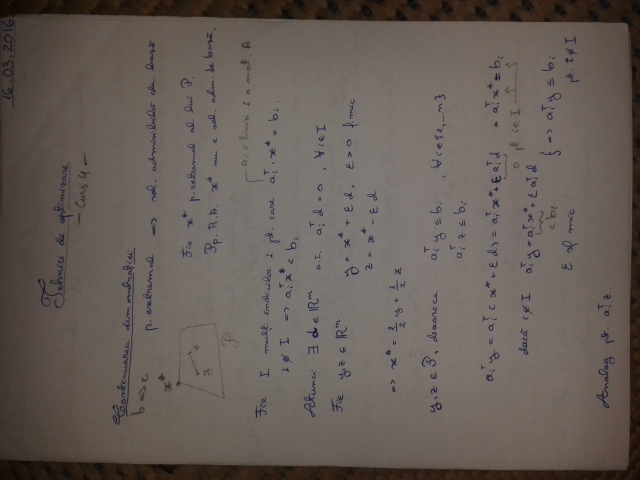 16.03.2016
Tehnici de optimizare
- Curs 4 -
Continuarea demonstrației
b => c p. extremal => sol. admisibilă de bază
x*
y
z
P
Fie x* p. extremal al lui P.
Pp. R.A. x* nu e sol. adm. de bază.
a_i = linia i a mat. A
Fie I mulț. indicilor i pt. care a_i^T x* = b_i.
i ∉ I => a_i^T x* < b_i
Atunci ∃ d ∈ R^n a.î. a_i^T d = 0, ∀ i ∈ I
Fie y, z ∈ R^n y = x* + εd, ε > 0 f. mic
z = x* - εd
=> x* = 1/2 y + 1/2 z
y, z ∈ P, deoarece a_i^T y ≤ b_i , ∀ i ∈ {1, ..., m}
a_i^T z ≤ b_i
a_i^T y = a_i^T (x* + εd) = a_i^T x* + ε a_i^T d = a_i^T x* = b_i
0 pt. i ∈ I
dacă i ∉ I a_i^T y = a_i^T x* + ε a_i^T d
< b_i
} => a_i^T y ≤ b_i pt. i ∉ I
ε f. mic
Analog pt. a_i^T z.